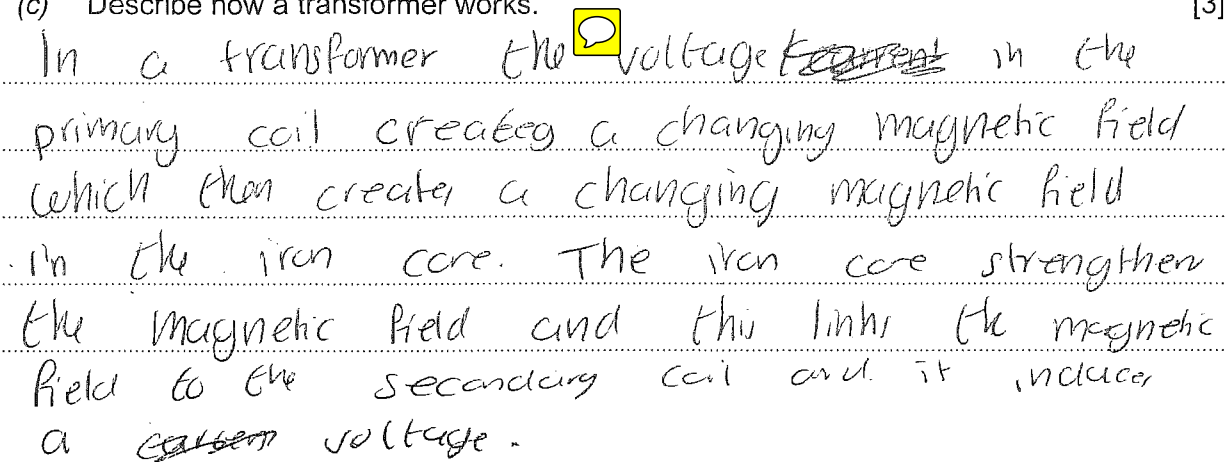 (c) Describe how a transformer works. [3]
In a transformer the voltage in the
primary coil creates a changing magnetic field
which then creates a changing magnetic field
in the iron core. The iron core strengthens
the magnetic field and this links the magnetic
field to the secondary coil and it induces
a voltage.